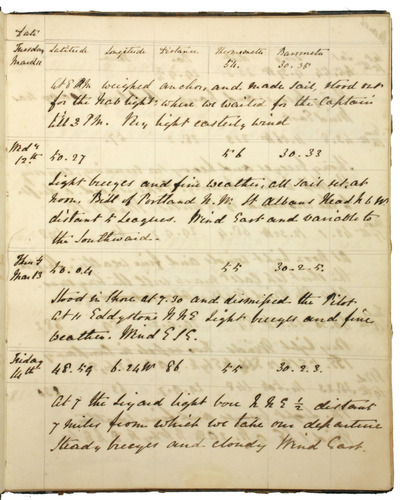 Date
Tuesday Latitude Longitude Distance Thermometer Barometer
March 11 54. 30.35
At 8 AM weighed anchor, and made sail, stood out
for the Nab light where we waited for the Captain
till 3 PM. Very light easterly wind
Wedy
12th 50.27 56 30.33
Light breezes and fine weather, all sail set, at
noon, Bill of Portland N.W. St Albans Head N b W
distant 5 Leagues. Wind East and variable to
the Southward.
Mar 13 50.04 55 30.2.5.
Stood in shore at 7.30 and dismissed the Pilot
at 4 Eddystone NNE Light breezes and fine
weather. Wind ESE.
Friday
14th 48.59 6.24W 86 55 30.2.3.
At 7 the Lizard light bore NNE ½ distant
7 miles from which we take our departure
Steady breezes and cloudy Wind East.